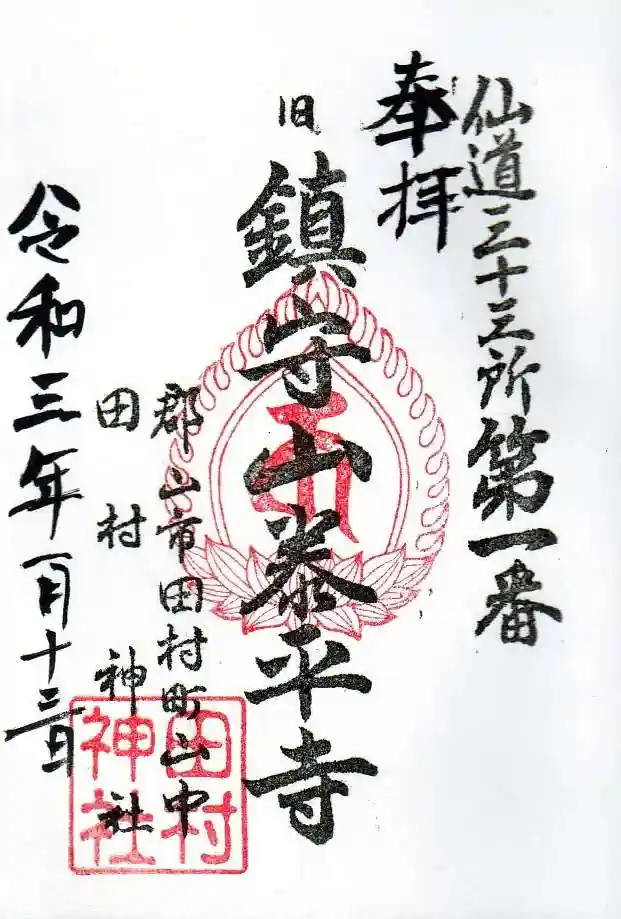 仙道三十三所第一番
奉拝
旧
鎮守山泰平寺
郡山市田村町山中
田村神社
令和三年一月十三日
田村
神社